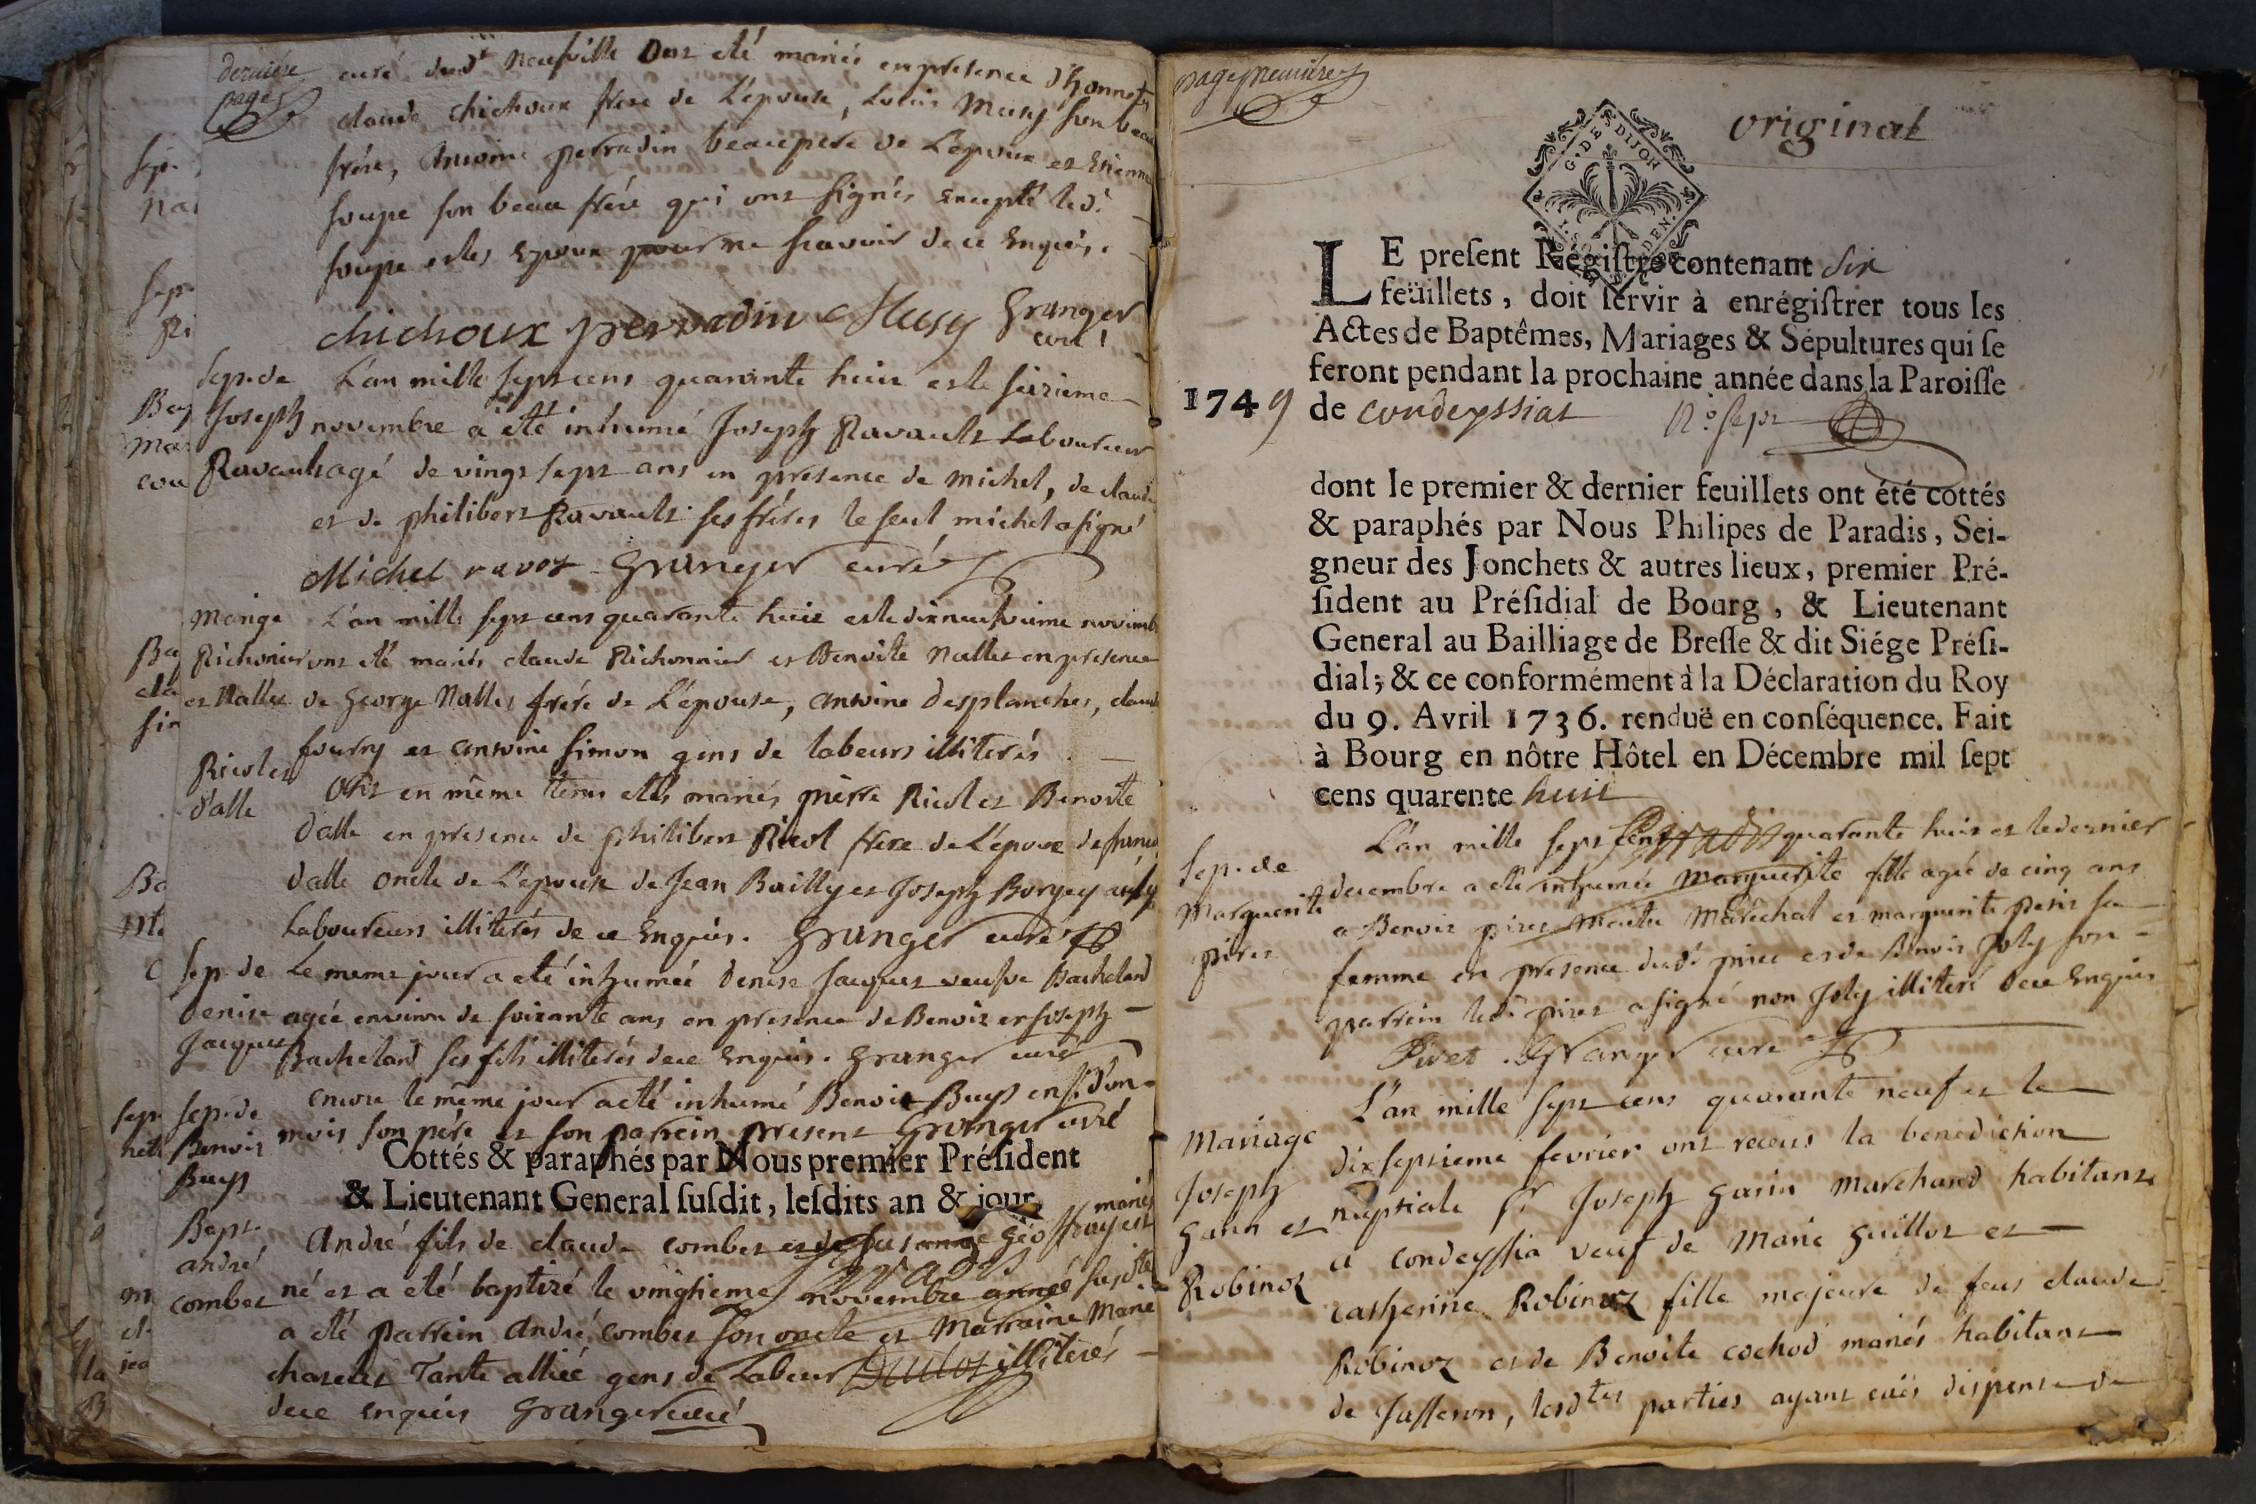 dernière
page
curé dud.t Neufville Ont eté mariés en presence d'honnetes
claude chichoux frere de L'épouse, Louis Musy son beau
frére, Antoine perradin beaupere de L'epoux et Etienne
soupe son beau frére qui ont signés Excepté led.
soupe et les Epoux pour ne scavoir de ce Enquis.
chichoux perradin Musy Granger
curé
Sep. de
Joseph
Ravault
L'an mille sept cens quarante huit et le seizieme
novembre a eté inhumé Joseph Ravault Laboureur
agé de vingt sept ans en presence de Michel, de claude
et de philibert Ravault ses fréres le seul michel a signé
Michel ravot Granger curé
Mariage
Richonier
et Nallet
L'an mille sept cens quarante huit et le dixneufvieme novembre
ont eté mariés claude Richonnier et Benoite Nallet en presence
de George Nallet frére de L'épouse, Antoine desplanches, claude
fourny et antoine simon gens de labeurs illiterés
Ricol et
dalle
Ont en même tems etés mariés pierre Ricol et Benoite
dalle en presence de philibert Ricol frere de L'époux de
dalle oncle de L'epouse de Jean Bailly et Joseph Borgey
Laboureurs illiterés de ce Enquis. Granger curé
Sep. de
denise
Jacquet
Le meme jour a eté inhumée denise Jacquet veufve Bachelard
agée environ de soixante ans en presence de Benoit et Joseph
Bachelard ses fils illiterés de ce Enquis. Granger curé
Sep. de
Benoit
Buys
encore le même jour a eté inhumé Benoit Buys
mois son père et son parrein present Granger curé
Cottés & paraphés par Nous premier Président
& Lieutenant General susdit, lesdits an & jour
Bapt.
andré
combet
André fils de claude combet et de susanne Geoffray mariés
né et a eté baptizé le vingtieme novembre année susditte
a eté parrein André combet son oncle et Marraine Marie
Tante alliée gens de Labeur illiterés
de ce enquis Granger curé
page premiere
original
G. DE DIJON
LE present Régistre contenant six
feüillets, doit servir à enrégistrer tous les
Actes de Baptêmes, Mariages & Sépultures qui se
feront pendant la prochaine année dans la Paroisse
1749 de condeyssiat N.o sept
dont le premier & dernier feuillets ont été cottés
& paraphés par Nous Philipes de Paradis, Sei-
gneur des Jonchets & autres lieux, premier Pré-
sident au Présidial de Bourg, & Lieutenant
General au Bailliage de Bresse & dit Siége Prési-
dial; & ce conformément à la Déclaration du Roy
du 9. Avril 1736. renduë en conséquence. Fait
à Bourg en nôtre Hôtel en Décembre mil sept
cens quarente huit
Sep. de
Marguerite
pivet
L'an mille sept cens quarante huit et le dernier
decembre a eté inhumée Marguerite fille agée de cinq ans
a Benoit pivet Maitre Maréchal et marguerite petit sa
femme en presence dud. pivet et de Benoit Joly son
parrein led. pivet a signé non Joly illiteré de ce Enquis
Pivet Granger curé
Mariage
Joseph
Garin et
Robinot
L'an mille sept cens quarante neuf et le
dix septieme fevrier ont receus la benediction
nuptiale s.r Joseph Garin Marchand habitant
a condeyssia veuf de Marie Guillot et
catherine Robinot fille majeure de feus claude
Robinot et de Benoite cochod mariés habitant
de Jasseron, lesd.tes parties ayant eües dispense de